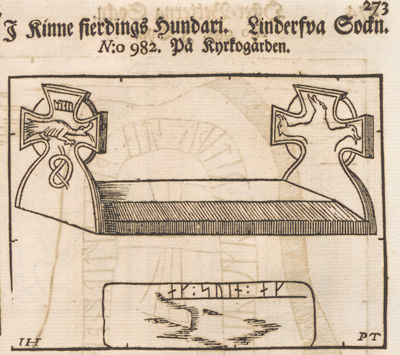 273
J Kinne fierdings Hundari. Linderfva Sockn.
N:o 982. På Kyrkogården.
ᚾᚠ:ᛋᚢᛁᚾ:ᚾᚠ
IH PT